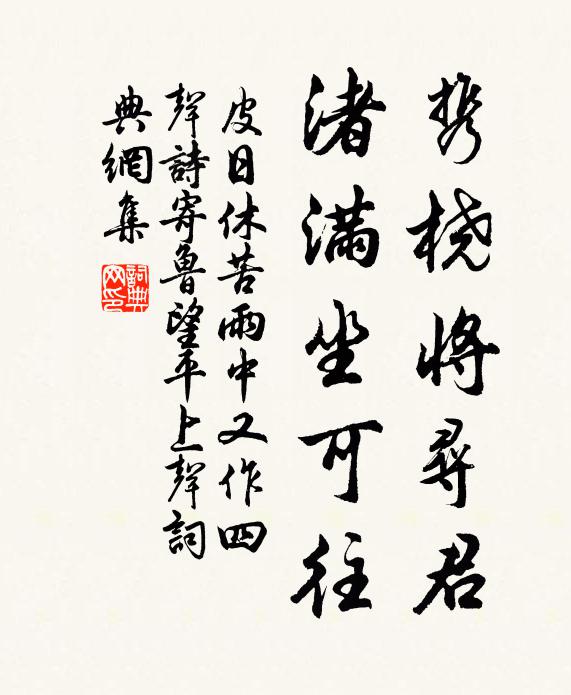 携桡將尋君
渚滿坐可往
皮日休苦雨中又作四
聲詩寄魯望平上聲詞
典網集
詞典网印